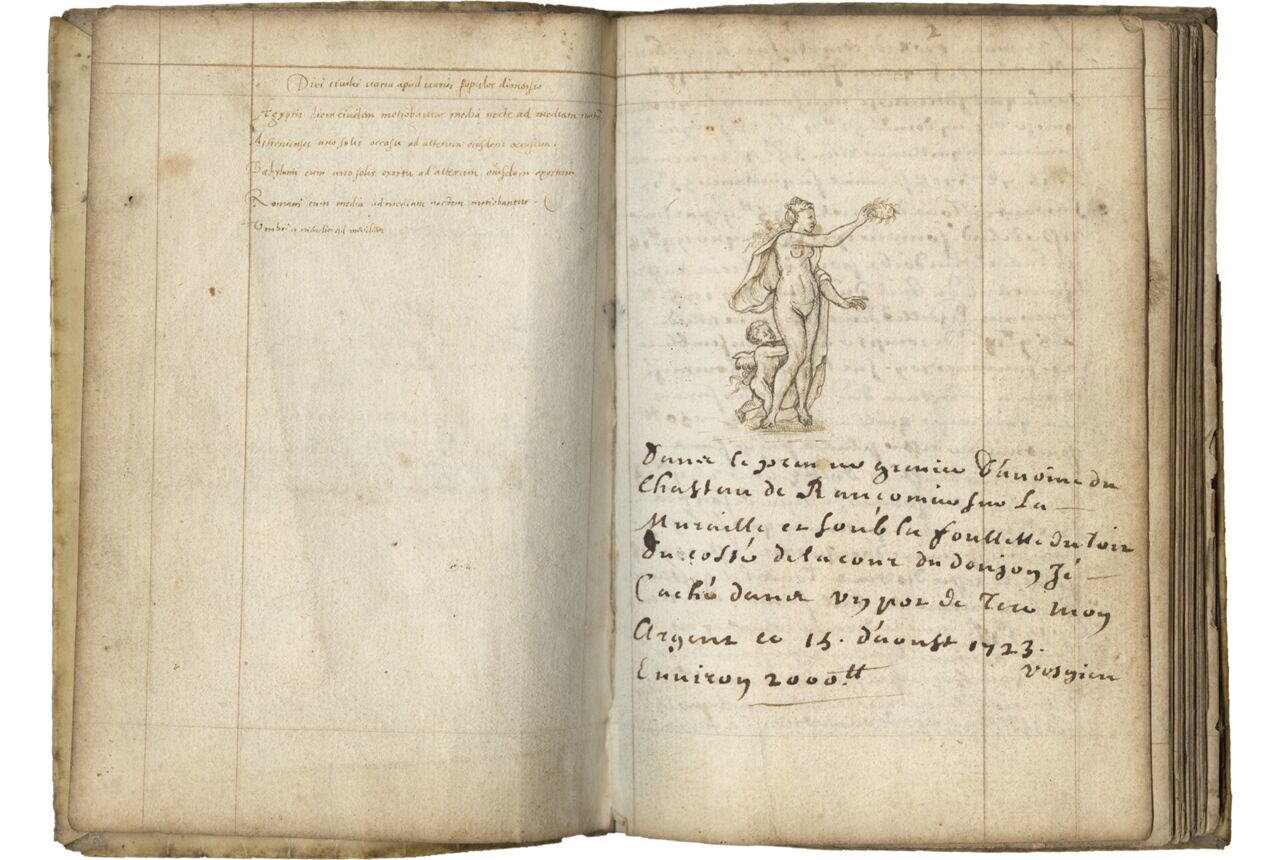 Diei civilis varia apud varios populos dimensio
Aegyptii diem civilem metiebantur media nocte ad mediam
Athenienses uno solis occasu ad alterum eiusdem occasum.
Babylonii eum uno solis exortu ad alterum eiusdem exortum
Romani eum media ad mediam noctem metiebantur
Umbri a meridie ad meridiem
2
Dans le premier grenier D'avoine du
Chasteau de sur La
Muraille et soub la du Toit
Du costé de la cour du donjon Jé
Caché dans un pot de Terre mon
Argent ce 15. d'aoust 1723.
Environ 2000.tt